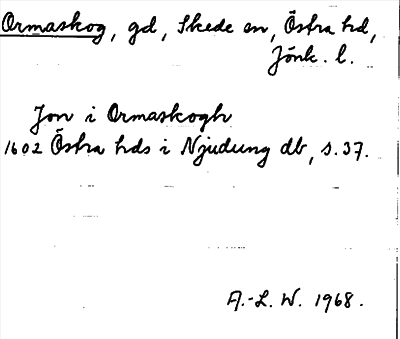 Ormaskog, gd, Skede sn, Östra hd,
Jönk. l.
Jon i Ormaskogh
1602 Östra hds i Njudung db, s. 37.
A.-L. W. 1968.